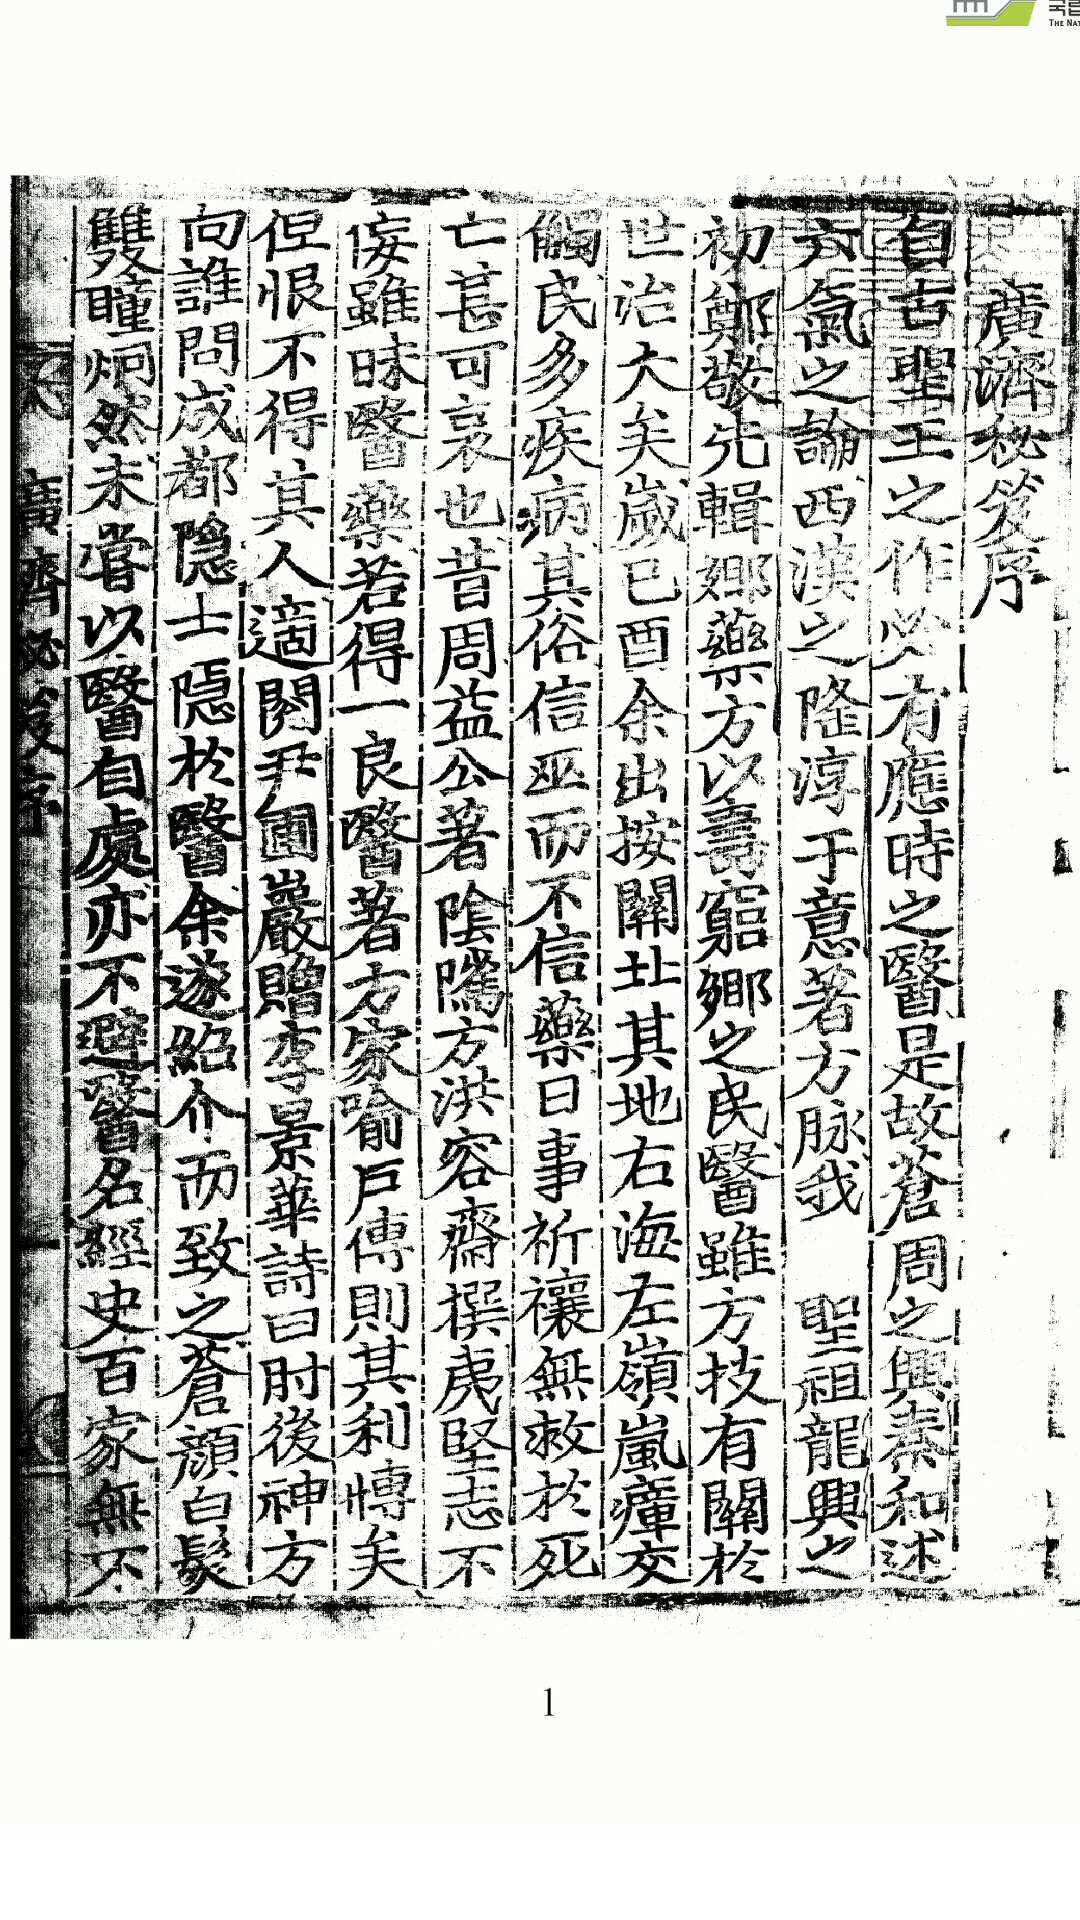 廣濟秘笈序
自古聖王之作必有應時之醫是故蒼周之興秦和述
六氣之論西漢之隆淳于意著方脉我 聖祖龍興之
初鄭敬先輯鄕藥方以壽窮鄕之民醫雖方技有關於
世治大矣歲己酉余出按關北其地右海左嶺嵐瘴交
觸民多疾病其俗信巫而不信藥日事祈禳無救於死
亡甚可哀也昔周益公著陰隲方洪容齋撰夷堅志不
侫雖昧醫藥若得一良醫著方家喻戶傳則其利博矣
但恨不得其人適閱尹圃巖贈李景華詩曰肘後神方
向誰問成都隐士隱於醫余遂紹介而致之蒼顔白髮
雙瞳炯然未嘗以醫自處亦不避醫名經史百家無不
廣濟秘笈序 一
1
국립
THE NAT